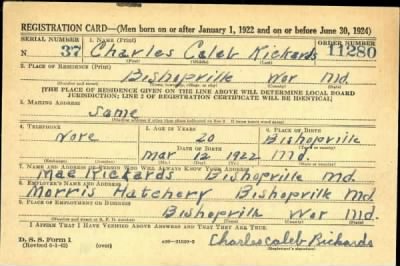 REGISTRATION CARD—(Men born on or after January 1, 1922 and on or before June 30, 1924)
SERIAL NUMBER 1. NAME (Print) ORDER NUMBER
N 37 Charles Caleb Rickards 11280
(First) (Middle) (Last)
2. PLACE OF RESIDENCE (Print)
Bishopville Wor Md.
(Number and street) (Town, township, village, or city) (County) (State)
[THE PLACE OF RESIDENCE GIVEN ON THE LINE ABOVE WILL DETERMINE LOCAL BOARD
JURISDICTION; LINE 2 OF REGISTRATION CERTIFICATE WILL BE IDENTICAL]
3. MAILING ADDRESS
Same
(Mailing address if other than place indicated on line 2. If same insert word same)
4. TELEPHONE 5. AGE IN YEARS 6. PLACE OF BIRTH
None 20 Bishopville
DATE OF BIRTH (Town or county)
Mar 12 1922 Md.
(Exchange) (Number) (Mo.) (Day) (Yr.) (State or country)
7. NAME AND ADDRESS OF PERSON WHO WILL ALWAYS KNOW YOUR ADDRESS
Mae Rickards Bishopville Md.
8. EMPLOYER'S NAME AND ADDRESS
Morris Hatchery Bishopville Md.
9. PLACE OF EMPLOYMENT OR BUSINESS
Bishopville Wor Md.
(Number and street or R. F. D. number) (Town) (County) (State)
I AFFIRM THAT I HAVE VERIFIED ABOVE ANSWERS AND THAT THEY ARE TRUE.
D. S. S. Form 1
(Revised 6-9-42) (over) Charles Caleb Rickards
(Registrant's signature)